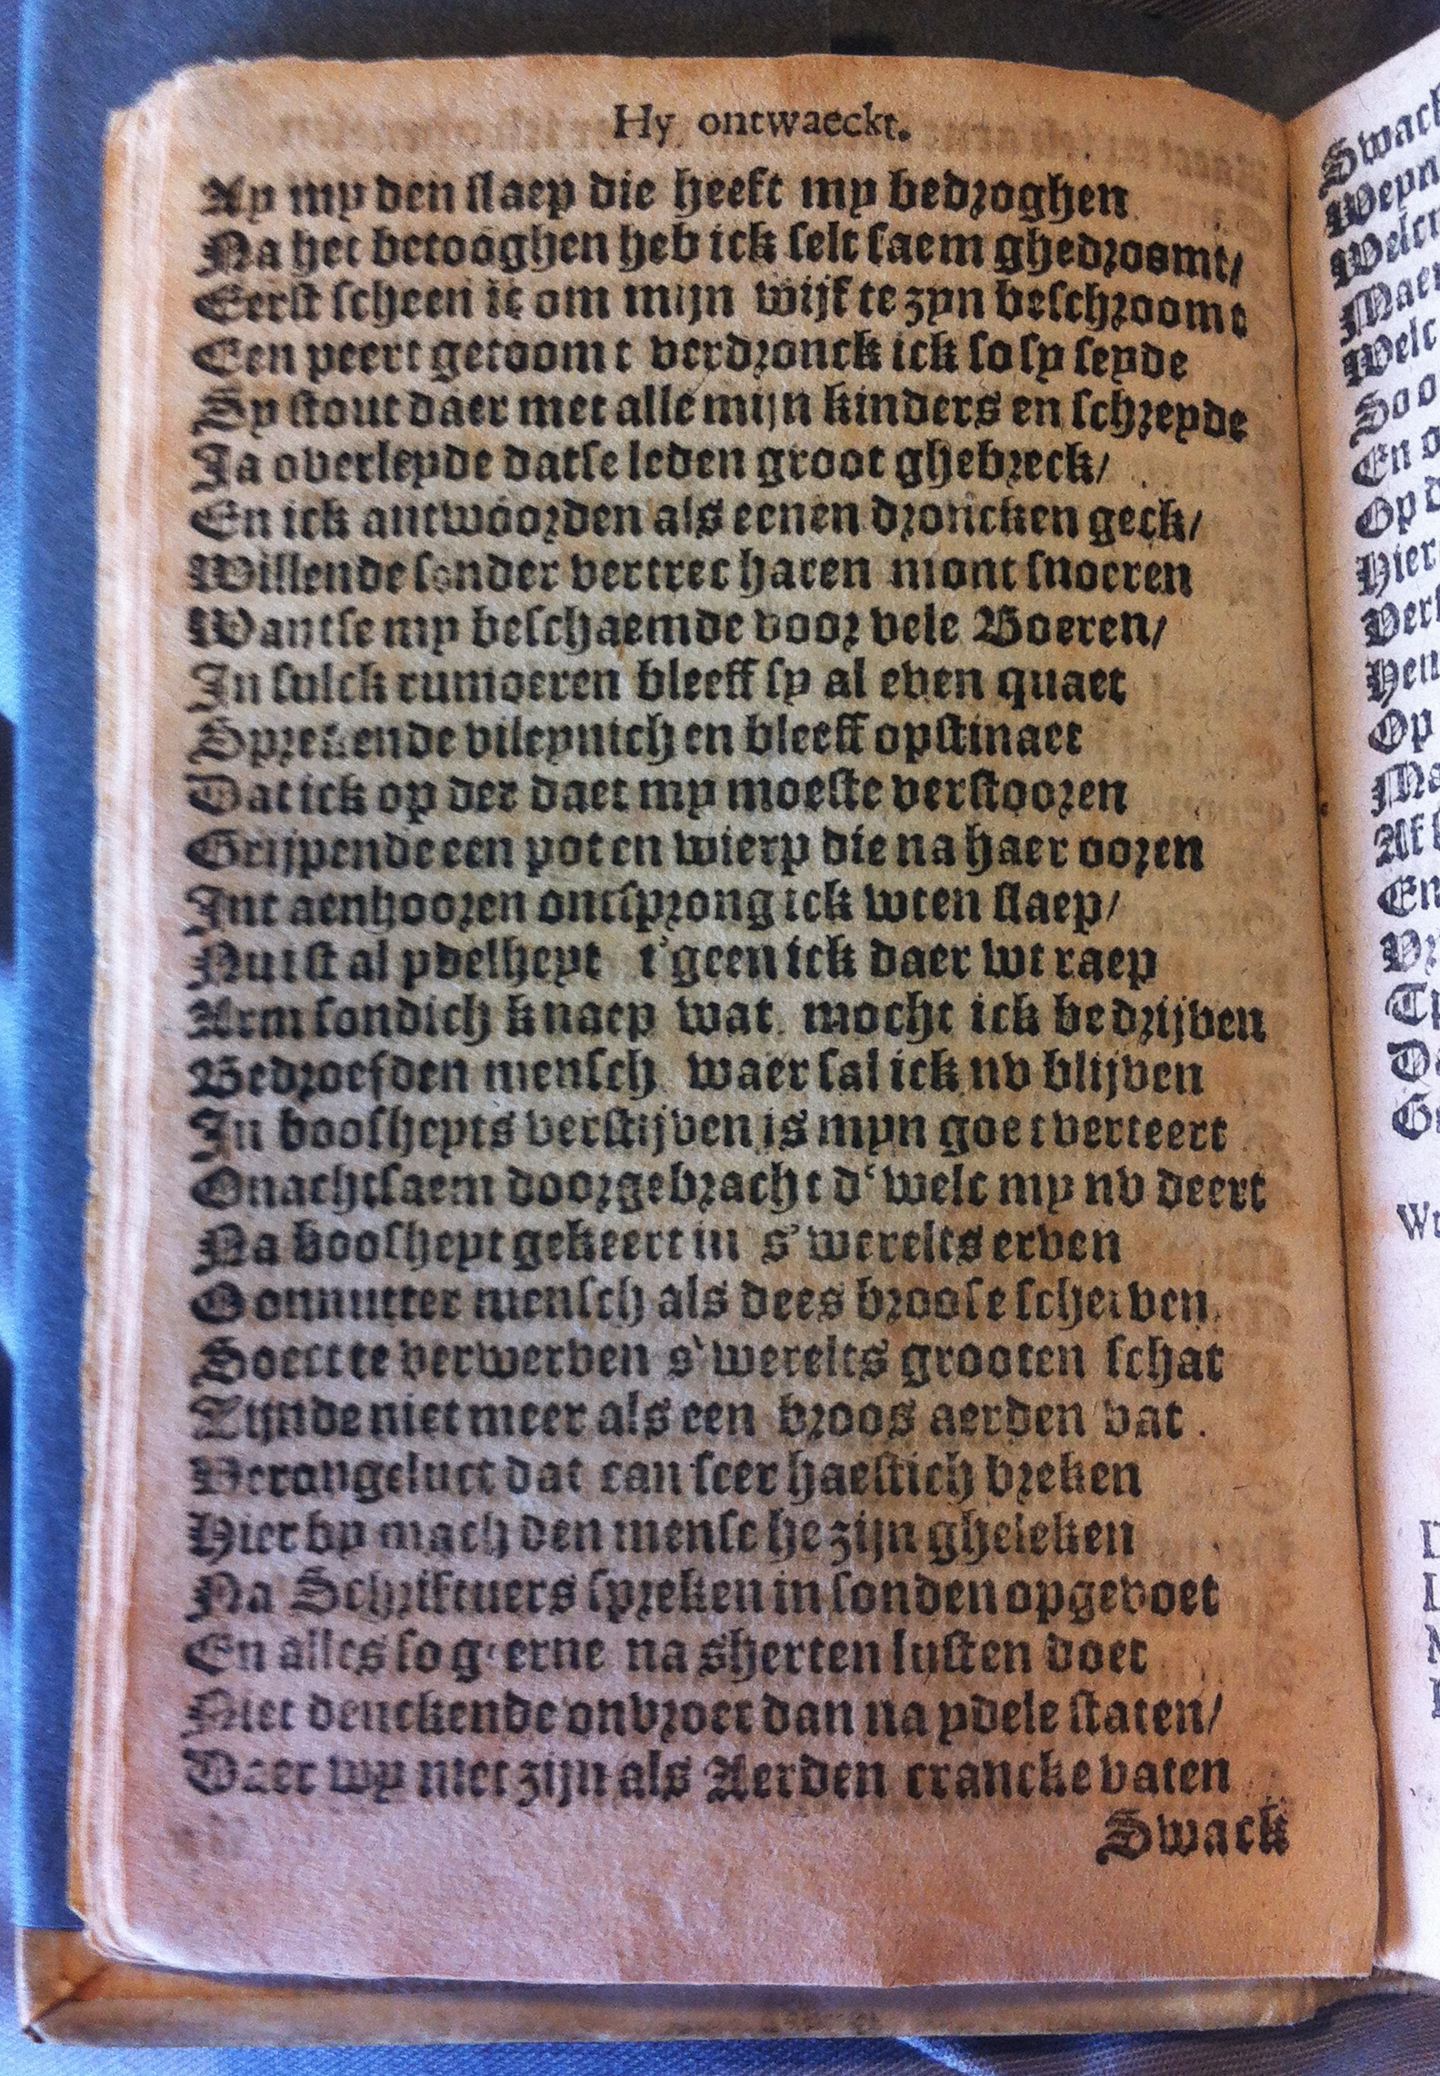 Hy ontwaeckt.
Ay my den slaep die heeft my bedroghen
Na het betooghen heb ick selt saem ghedroomt/
Eerst scheen ic om mijn wijf te zyn beschroomt
Een peert getoomt verdronck ick so sy seyde
Sy stout daer met alle mijn kinders en schreyde
Ja overleyde datse leden groot ghebreck/
En ick antwoorden als eenen droncken geck/
Willende sonder vertrec haren mont snoeren
Wantse my beschaemde voor vele Boeren/
In sulck rumoeren bleeff sy al even quaet
Sprekende vileynich en bleeff opstinaet
Dat ick op der daet my moeste verstooren
Grijpende een pot en wierp die na haer ooren
Int aenhooren ontsprong ick wten slaep/
Nu ist al ydelheyt t'geen ick daer wt raep
Arm sondich knaep wat mocht ick bedrijven
Bedroefden mensch waer sal ick nv blijven
In boosheyts verstijven is myn goet verteert
Onachtsaem doorgebracht d'welc my nv deert
Na boosheyt gekeert in s'werelts erven
O onnutter mensch als dees broose scherven
Soect te verwerven s'werelts grooten schat
Zijnde niet meer als een broos aerden vat.
Verongeluct dat can seer haestich breken
Hier by mach den mensche zijn gheleken
Na Schriftuers spreken in sonden opgevoet
En alles so geerne na sherten lusten doet
Niet denckende onvroet dan na ydele staten/
Daer wy niet zijn als Aerden crancke vaten
Swack